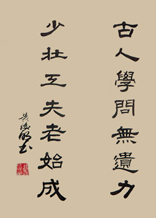 古人學問無遺力
少壯工夫老始成